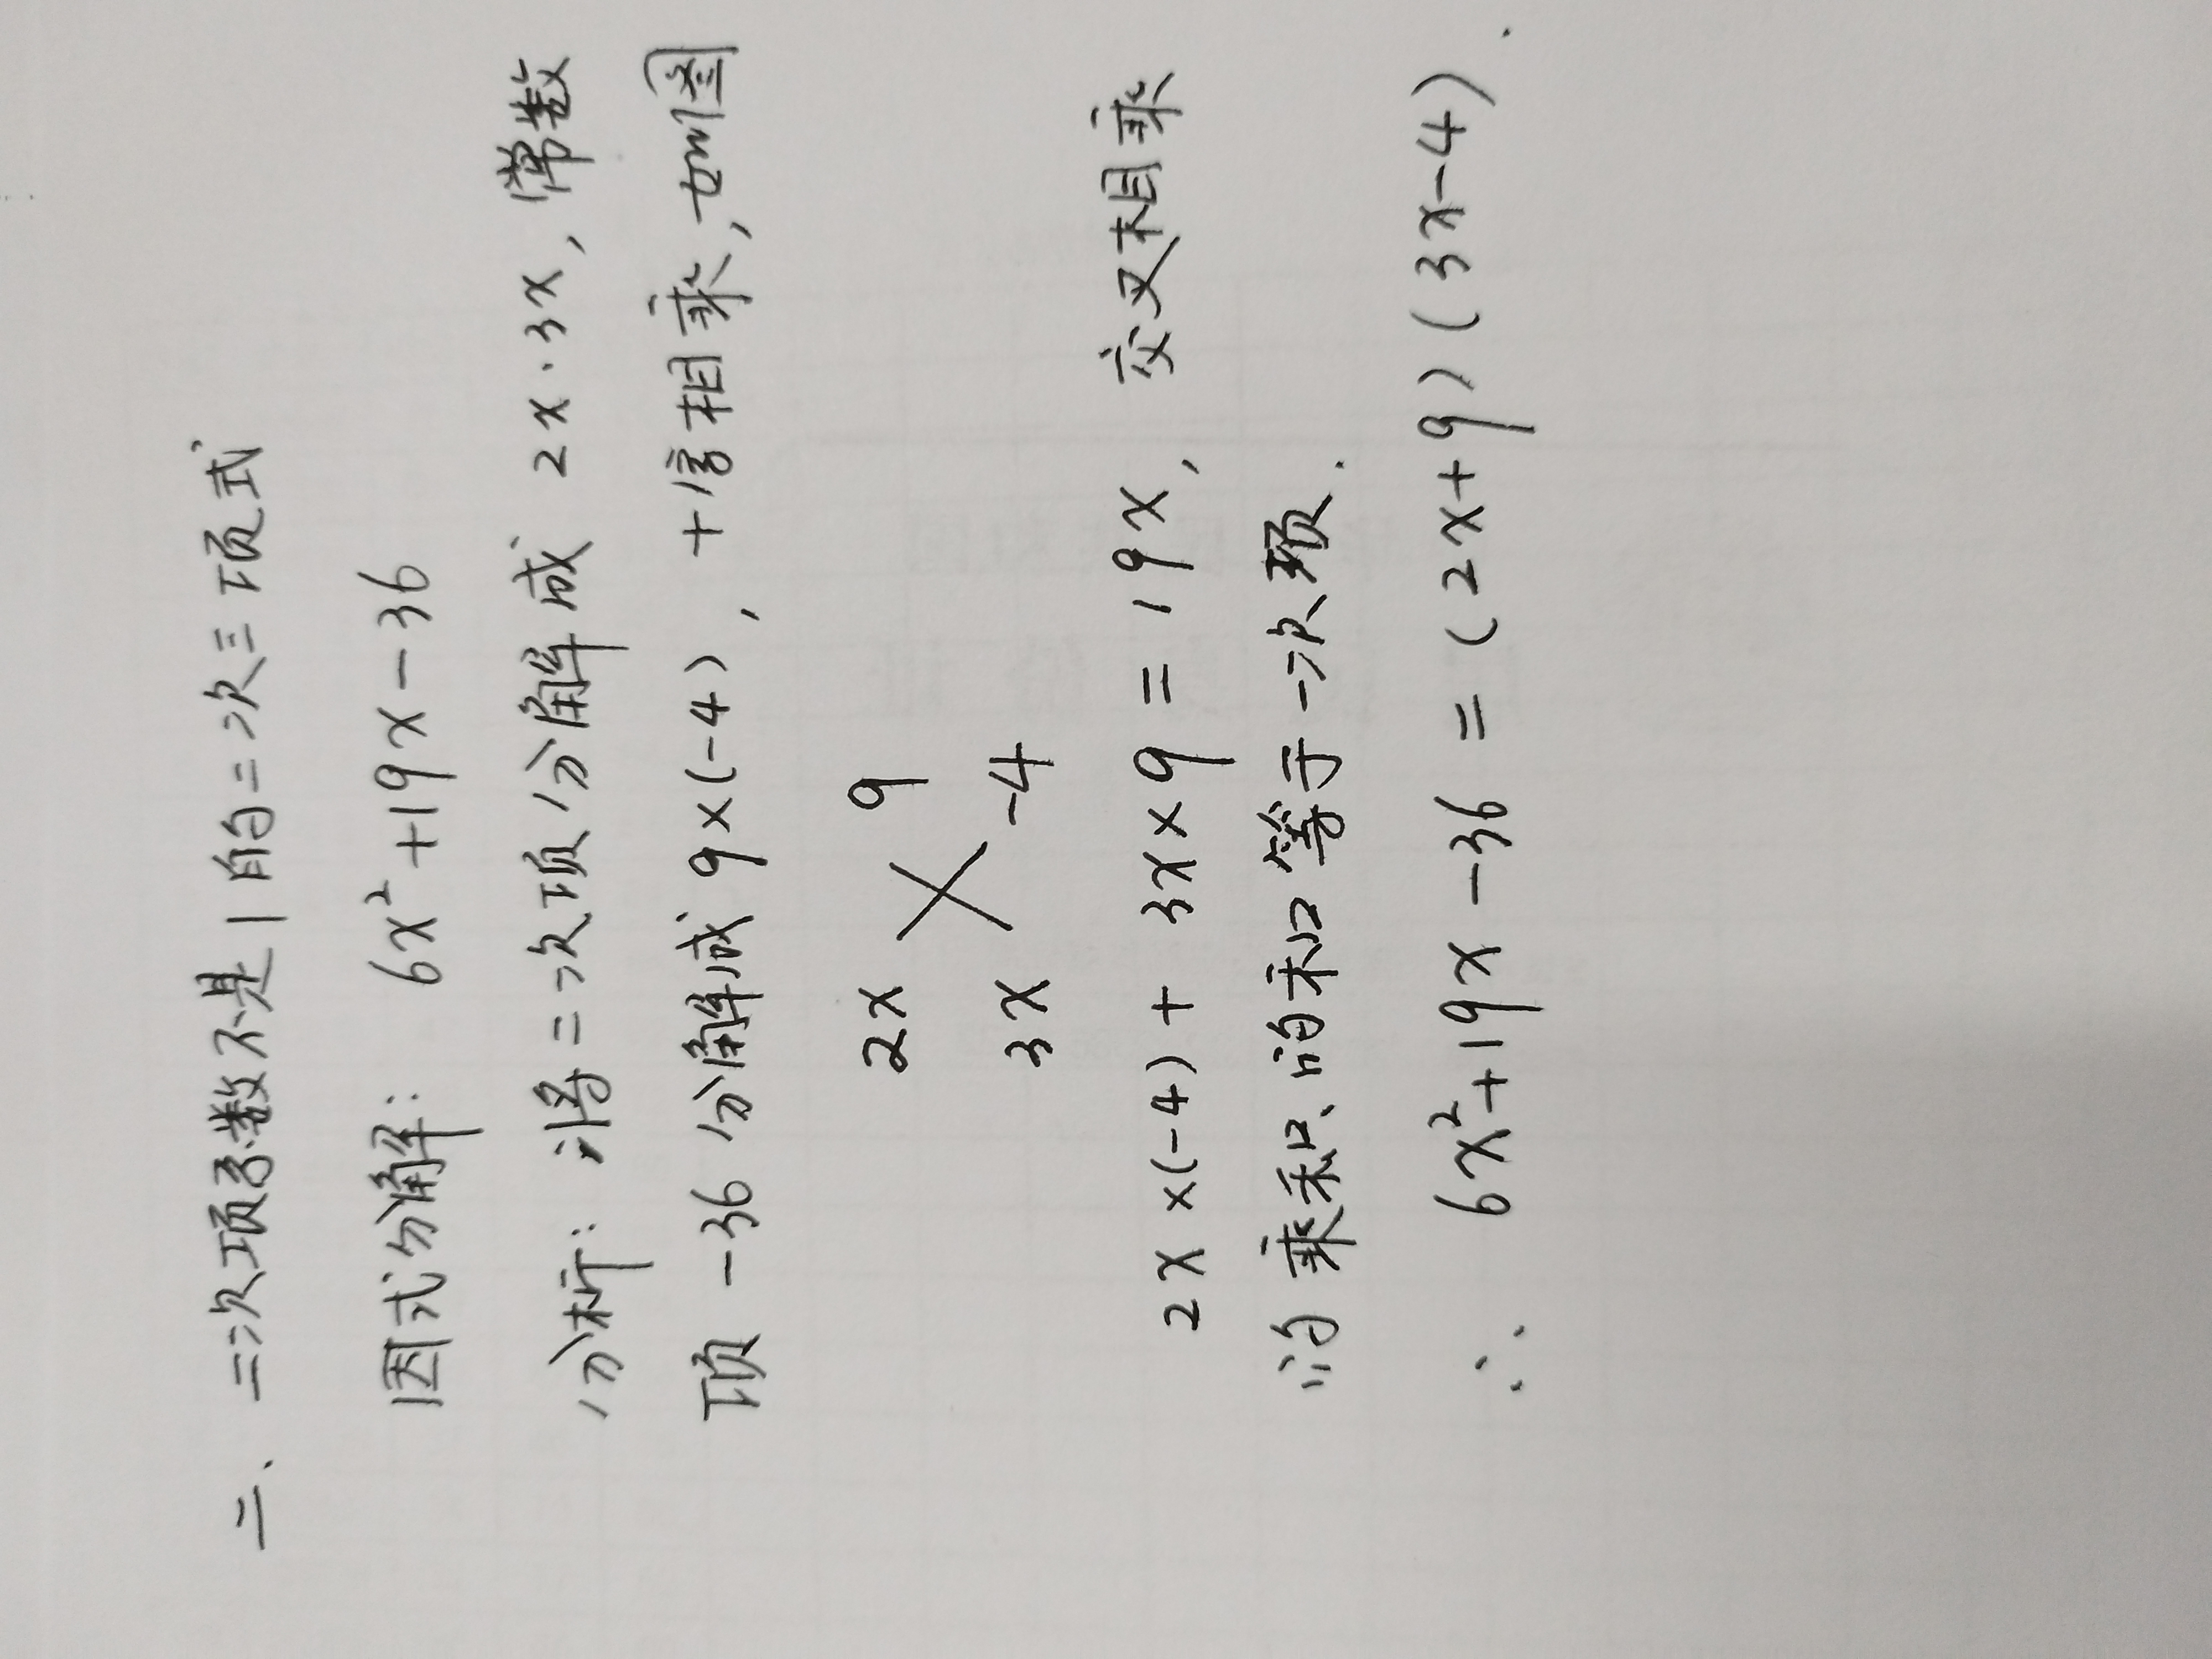 二、二次项系数不是1的二次三项式
因式分解: 6x²+19x-36
分析: 将二次项分解成 2x·3x, 常数
项 -36 分解成 9×(-4), 十字相乘, 如图
2x 9
3x -4
2x×(-4)+ 3x×9 = 19x, 交叉相乘
的乘积的和等于一次项.
∴ 6x²+19x-36 = (2x+9)(3x-4).